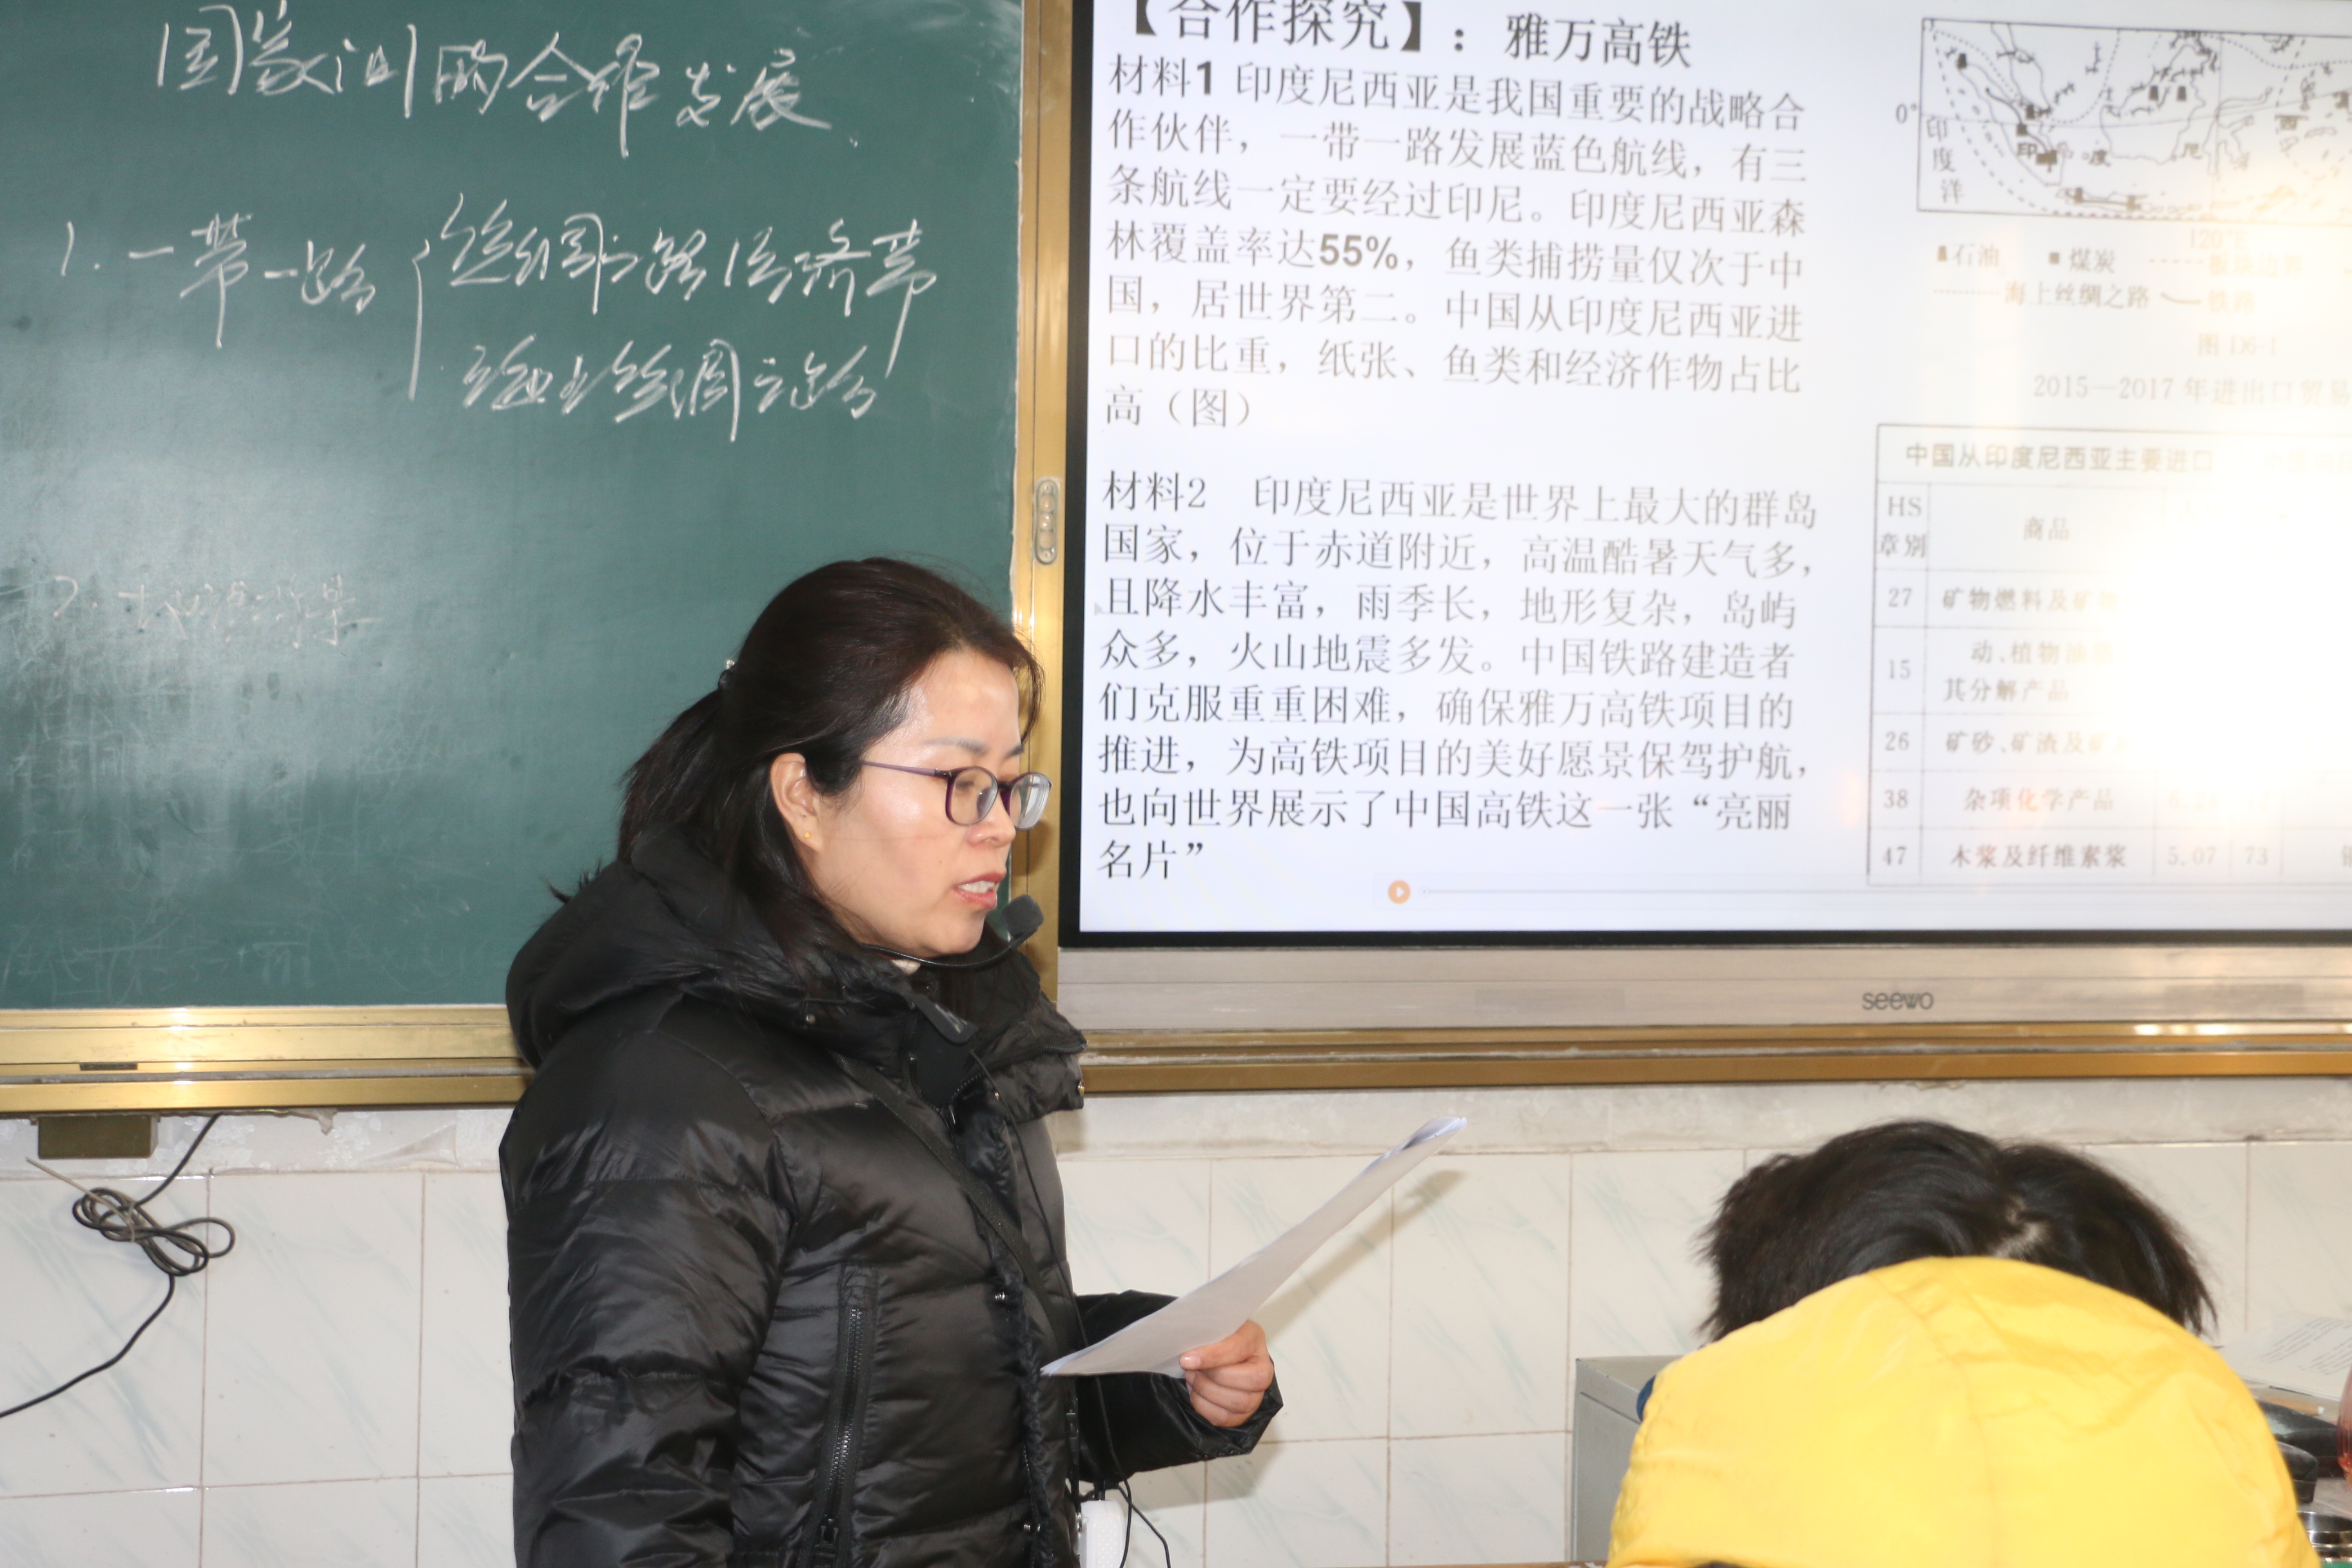 国家间的合作发展
1. 一带一路
丝绸之路经济带
海上丝绸之路
2.
【合作探究】：雅万高铁
材料1 印度尼西亚是我国重要的战略合
作伙伴，一带一路发展蓝色航线，有三
条航线一定要经过印尼。印度尼西亚森
林覆盖率达55%，鱼类捕捞量仅次于中
国，居世界第二。中国从印度尼西亚进
口的比重，纸张、鱼类和经济作物占比
高（图）
材料2 印度尼西亚是世界上最大的群岛
国家，位于赤道附近，高温酷暑天气多，
且降水丰富，雨季长，地形复杂，岛屿
众多，火山地震多发。中国铁路建造者
们克服重重困难，确保雅万高铁项目的
推进，为高铁项目的美好愿景保驾护航，
也向世界展示了中国高铁这一张“亮丽
名片”
0°
印度洋
印 度 尼 西
120°E
石油 煤炭 板块边界
海上丝绸之路 铁路
图 D6-1
2015—2017 年进出口贸易
中国从印度尼西亚主要进口
HS章别 商品
27 矿物燃料及矿物
15 动、植物油脂
其分解产品
26 矿砂、矿渣及矿
38 杂项化学产品
47 木浆及纤维素浆 5.07 73
seewo